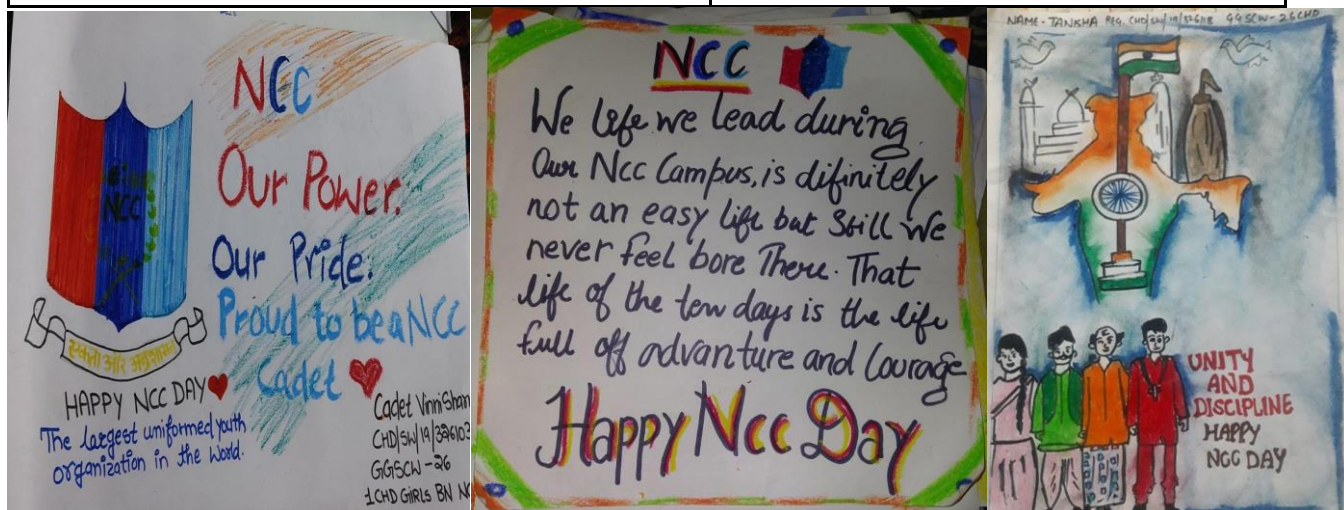 NCC
Our Power.
Our Pride.
Proud to be a NCC
Cadet
NCC
एकता और अनुशासन
HAPPY NCC DAY
The largest uniformed youth
organization in the world.
Cadet Vinni Sharm
CHD/SW/19/326103
GGSCW-26
1 CHD GIRLS BN NC
NCC
We life we lead during
Our Ncc Campus, is difinitely
not an easy life but Still We
never feel bore There. That
life of the tew days is the life
full off advanture and Courage
Happy Ncc Day
NAME - TANISHA REG. CHD/SW/19/326118 GGSCW-26CHD
UNITY
AND
DISCIPLINE
HAPPY
NCC DAY